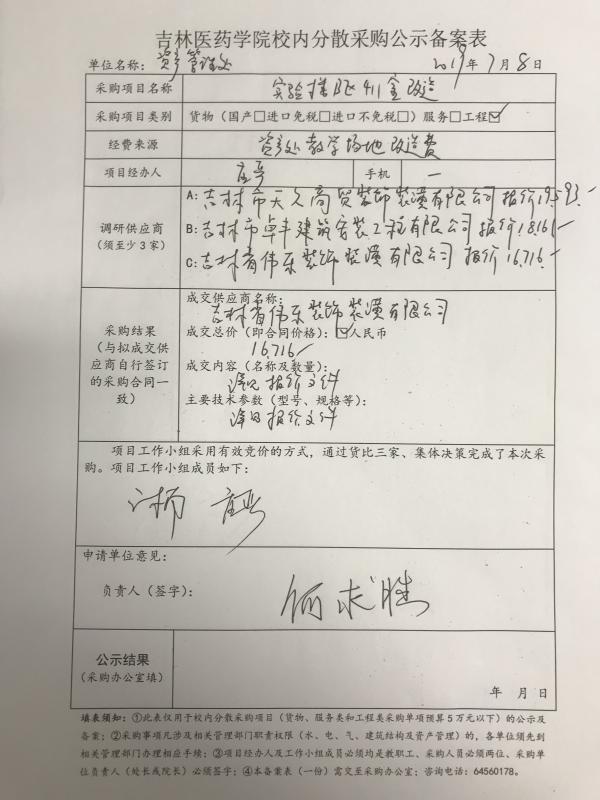 吉林医药学院校内分散采购公示备案表
单位名称: 资产管理处 2019年7月8日
采购项目名称 实验楼
采购项目类别 货物(国产□进口免税□进口不免税□)服务□工程☑
经费来源 资产处教学场地改造费
项目经办人 手机 —
调研供应商
(须至少3家)
A:吉林市天久商贸装饰装潢有限公司 报价19593.-
B:吉林市卓丰建筑安装工程有限公司 报价18,165/-
C:吉林省伟东装饰装潢有限公司 报价16,716.-
采购结果
(与拟成交供
应商自行签订
的采购合同一
致)
成交供应商名称:
吉林省伟东装饰装潢有限公司
成交总价(即合同价格):☑人民币
16,716/-
成交内容(名称及数量):
详见报价文件
主要技术参数(型号、规格等):
详见报价文件
项目工作小组采用有效竞价的方式，通过货比三家、集体决策完成了本次采
购。项目工作小组成员如下:
申请单位意见:
负责人(签字): 何求胜
公示结果
(采购办公室填)
年 月 日
填表须知:①此表仅用于校内分散采购项目(货物、服务类和工程类采购单项预算5万元以下)的公示及
备案;②采购事项凡涉及相关管理部门职责权限(水、电、气、建筑结构及资产管理)的，各单位须先到
相关管理部门办理相应手续;③项目经办人及工作小组成员必须均是教职工、采购人员必须两位、采购单
位负责人(处长或院长)必须签字;④本备案表(一份)需交至采购办公室;咨询电话:64560178。